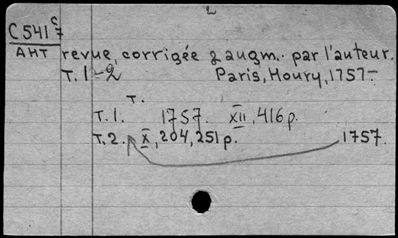 2
C541 c/7
АНТ revue, corrigée & augm. par l'auteur.
T.1-2 Paris, Houry, 1757-
T.
T.1. 1757. XII, 416 p.
T.2. X, 204, 251 p. 1757.